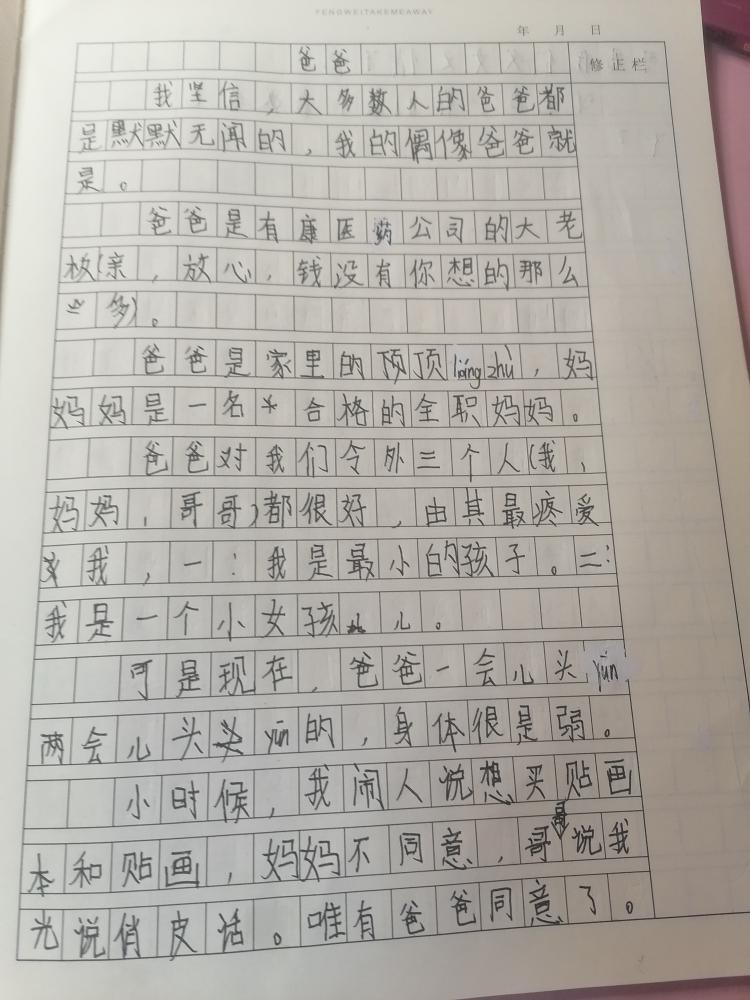 FENGWEITAKEMEAWAY
年 月 日
爸爸
修正栏
我坚信，大多数人的爸爸都
是默默无闻的，我的偶像爸爸就
是。
爸爸是有康医药公司的大老
板(亲，放心，钱没有你想的那么
多)。
爸爸是家里的顶liáng zhù，妈
妈妈是一名合格的全职妈妈。
爸爸对我们令外三个人(我，
妈妈，哥哥)都很好，由其最疼爱
我，一：我是最小的孩子。二：
我是一个小女孩儿。
可是现在，爸爸一会儿头yūn
两会儿头yūn的，身体很是弱。
小时候，我闹人说想买贴画
本和贴画，妈妈不同意，哥哥说我
光说俏皮话。唯有爸爸同意了。